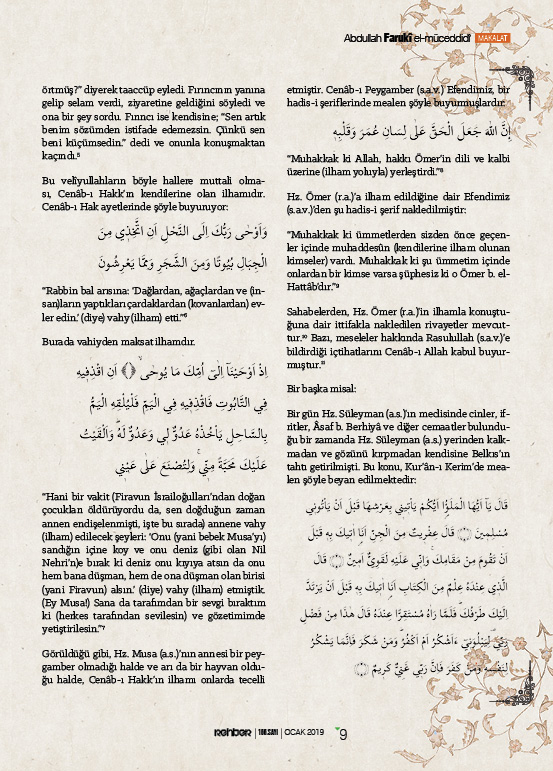 Abdullah Farukî el-müceddidî MAKALAT
örtmüş?” diyerek taaccüp eyledi. Fırıncının yanına
gelip selam verdi, ziyaretine geldiğini söyledi ve
ona bir şey sordu. Fırıncı ise kendisine; “Sen artık
benim sözümden istifade edemezsin. Çünkü sen
beni küçümsedin.” dedi ve onunla konuşmaktan
kaçındı.⁵
Bu veliyullahların böyle hallere muttali olma-
sı, Cenâb-ı Hakk’ın kendilerine olan ilhamıdır.
Cenâb-ı Hak ayetlerinde şöyle buyuruyor:
وَاَوْحٰى رَبُّكَ اِلَى النَّحْلِ اَنِ اتَّخِذِي مِنَ
الْجِبَالِ بُيُوتًا وَمِنَ الشَّجَرِ وَمِمَّا يَعْرِشُونَ
“Rabbin bal arısına: ‘Dağlardan, ağaçlardan ve (in-
san)ların yaptıkları çardaklardan (kovanlardan) ev-
ler edin.’ (diye) vahy (ilham) etti.”⁶
Burada vahiyden maksat ilhamdır.
اِذْ اَوْحَيْنَٓا اِلٰٓى اُمِّكَ مَا يُوحٰىۙ اَنِ اقْذِفِيهِ
فِي التَّابُوتِ فَاقْذِفِيهِ فِي الْيَمِّ فَلْيُلْقِهِ الْيَمُّ
بِالسَّاحِلِ يَأْخُذْهُ عَدُوٌّ لِي وَعَدُوٌّ لَهُ وَاَلْقَيْتُ
عَلَيْكَ مَحَبَّةً مِنِّي وَلِتُصْنَعَ عَلٰى عَيْنِي
“Hani bir vakit (Firavun İsrailoğulları’ndan doğan
çocukları öldürüyordu da, sen doğduğun zaman
annen endişelenmişti, işte bu sırada) annene vahy
(ilham) edilecek şeyleri: ‘Onu (yani bebek Musa’yı)
sandığın içine koy ve onu deniz (gibi olan Nil
Nehri’n)e bırak ki deniz onu kıyıya atsın da onu
hem bana düşman, hem de ona düşman olan birisi
(yani Firavun) alsın.’ (diye) vahy (ilham) etmiştik.
(Ey Musa!) Sana da tarafımdan bir sevgi bıraktım
ki (herkes tarafından sevilesin) ve gözetimimde
yetiştirilesin.”⁷
Görüldüğü gibi, Hz. Musa (a.s.)’nın annesi bir pey-
gamber olmadığı halde ve arı da bir hayvan oldu-
ğu halde, Cenâb-ı Hakk’ın ilhamı onlarda tecelli
etmiştir. Cenâb-ı Peygamber (s.a.v.) Efendimiz, bir
hadis-i şeriflerinde mealen şöyle buyurmuşlardır:
إِنَّ اللّٰهَ جَعَلَ الْحَقَّ عَلٰى لِسَانِ عُمَرَ وَقَلْبِهِ
“Muhakkak ki Allah, hakkı Ömer’in dili ve kalbi
üzerine (ilham yoluyla) yerleştirdi.”⁸
Hz. Ömer (r.a.)’a ilham edildiğine dair Efendimiz
(s.a.v.)’den şu hadis-i şerif nakledilmiştir:
“Muhakkak ki ümmetlerden sizden önce geçen-
ler içinde muhaddesûn (kendilerine ilham olunan
kimseler) vardı. Muhakkak ki şu ümmetim içinde
onlardan bir kimse varsa şüphesiz ki o Ömer b. el-
Hattâb’dır.”⁹
Sahabelerden, Hz. Ömer (r.a.)’in ilhamla konuştu-
ğuna dair ittifakla nakledilen rivayetler mevcut-
tur.¹⁰ Bazı, meseleler hakkında Rasulullah (s.a.v.)’e
bildirdiği içtihatlarını Cenâb-ı Allah kabul buyur-
muştur.¹¹
Bir başka misal:
Bir gün Hz. Süleyman (a.s.)’ın meclisinde cinler, if-
ritler, Âsaf b. Berhiyâ ve diğer cemaatler bulundu-
ğu bir zamanda Hz. Süleyman (a.s.) yerinden kalk-
madan ve gözünü kırpmadan kendisine Belkıs’ın
tahtı getirilmişti. Bu konu, Kur’ân-ı Kerim’de mea-
len şöyle beyan edilmektedir:
قَالَ يَٓا اَيُّهَا الْمَلَؤُا اَيُّكُمْ يَأْتِينِي بِعَرْشِهَا قَبْلَ اَنْ يَأْتُونِي
مُسْلِمِينَ قَالَ عِفْرِيتٌ مِنَ الْجِنِّ اَنَا اٰتِيكَ بِهِ قَبْلَ
اَنْ تَقُومَ مِنْ مَقَامِكَ وَاِنِّي عَلَيْهِ لَقَوِيٌّ اَمِينٌ قَالَ
الَّذِي عِنْدَهُ عِلْمٌ مِنَ الْكِتَابِ اَنَا اٰتِيكَ بِهِ قَبْلَ اَنْ يَرْتَدَّ
اِلَيْكَ طَرْفُكَ فَلَمَّا رَاٰهُ مُسْتَقِرًّا عِنْدَهُ قَالَ هٰذَا مِنْ فَضْلِ
رَبِّي لِيَبْلُوَنِي ءَاَشْكُرُ اَمْ اَكْفُرُ وَمَنْ شَكَرَ فَاِنَّمَا يَشْكُرُ
لِنَفْسِهِ وَمَنْ كَفَرَ فَاِنَّ رَبِّي غَنِيٌّ كَرِيمٌ
Rehber | 108.SAYI | OCAK 2019 9